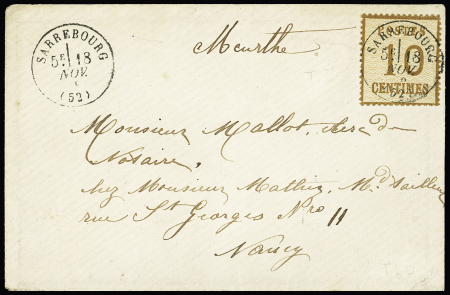 SARREBOURG
5E 18
NOV.
(52)
Meurthe
POSTES
10
CENTIMES
SARREBOURG
5E 18
NOV.
(52)
Monsieur Mallot, clerc de
Notaire,
chez Monsieur Mathis, Md tailleur
rue St Georges Nro 11
Nancy